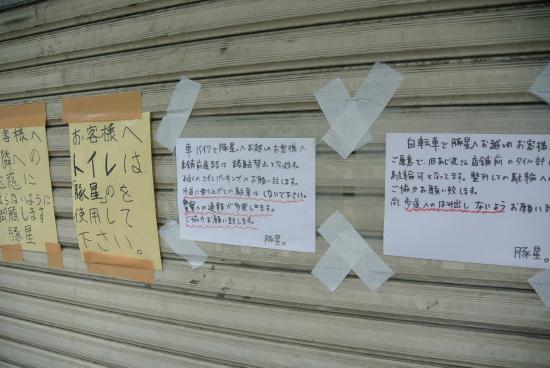 客様へ
隣への
迷惑に
ならないように
御願します
豚星
お客様へ
トイレは、
豚星のを
使用して
下さい。
車 バイクで豚星。へお越しのお客様へ
店舗前道路は 路駐禁止となります。
お近くのコインパーキングへお願い致します。
歩道に乗り上げての駐車は しないで下さい。
警察への通報が多発してます。
ご協力お願い致します。
豚星。
自転車で豚星へお越しのお客様
ご厚意で、旧あど
店舗前のタイル部
駐輪可となってます。整列しての駐輪への
ご協力お願い致します。
尚 歩道へのはみ出し ないよう お願い致
豚星。